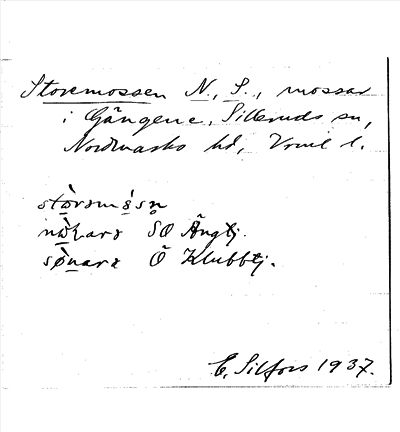 Storemossen N., S., mossar
i Gängene, Silleruds sn,
Nordmarks hd, Vrml l.
stòrəmɔ́sn̥
nòɽarə SO Ängtj.
sønarə Ö Klubbtj.
E. Silfors 1937.